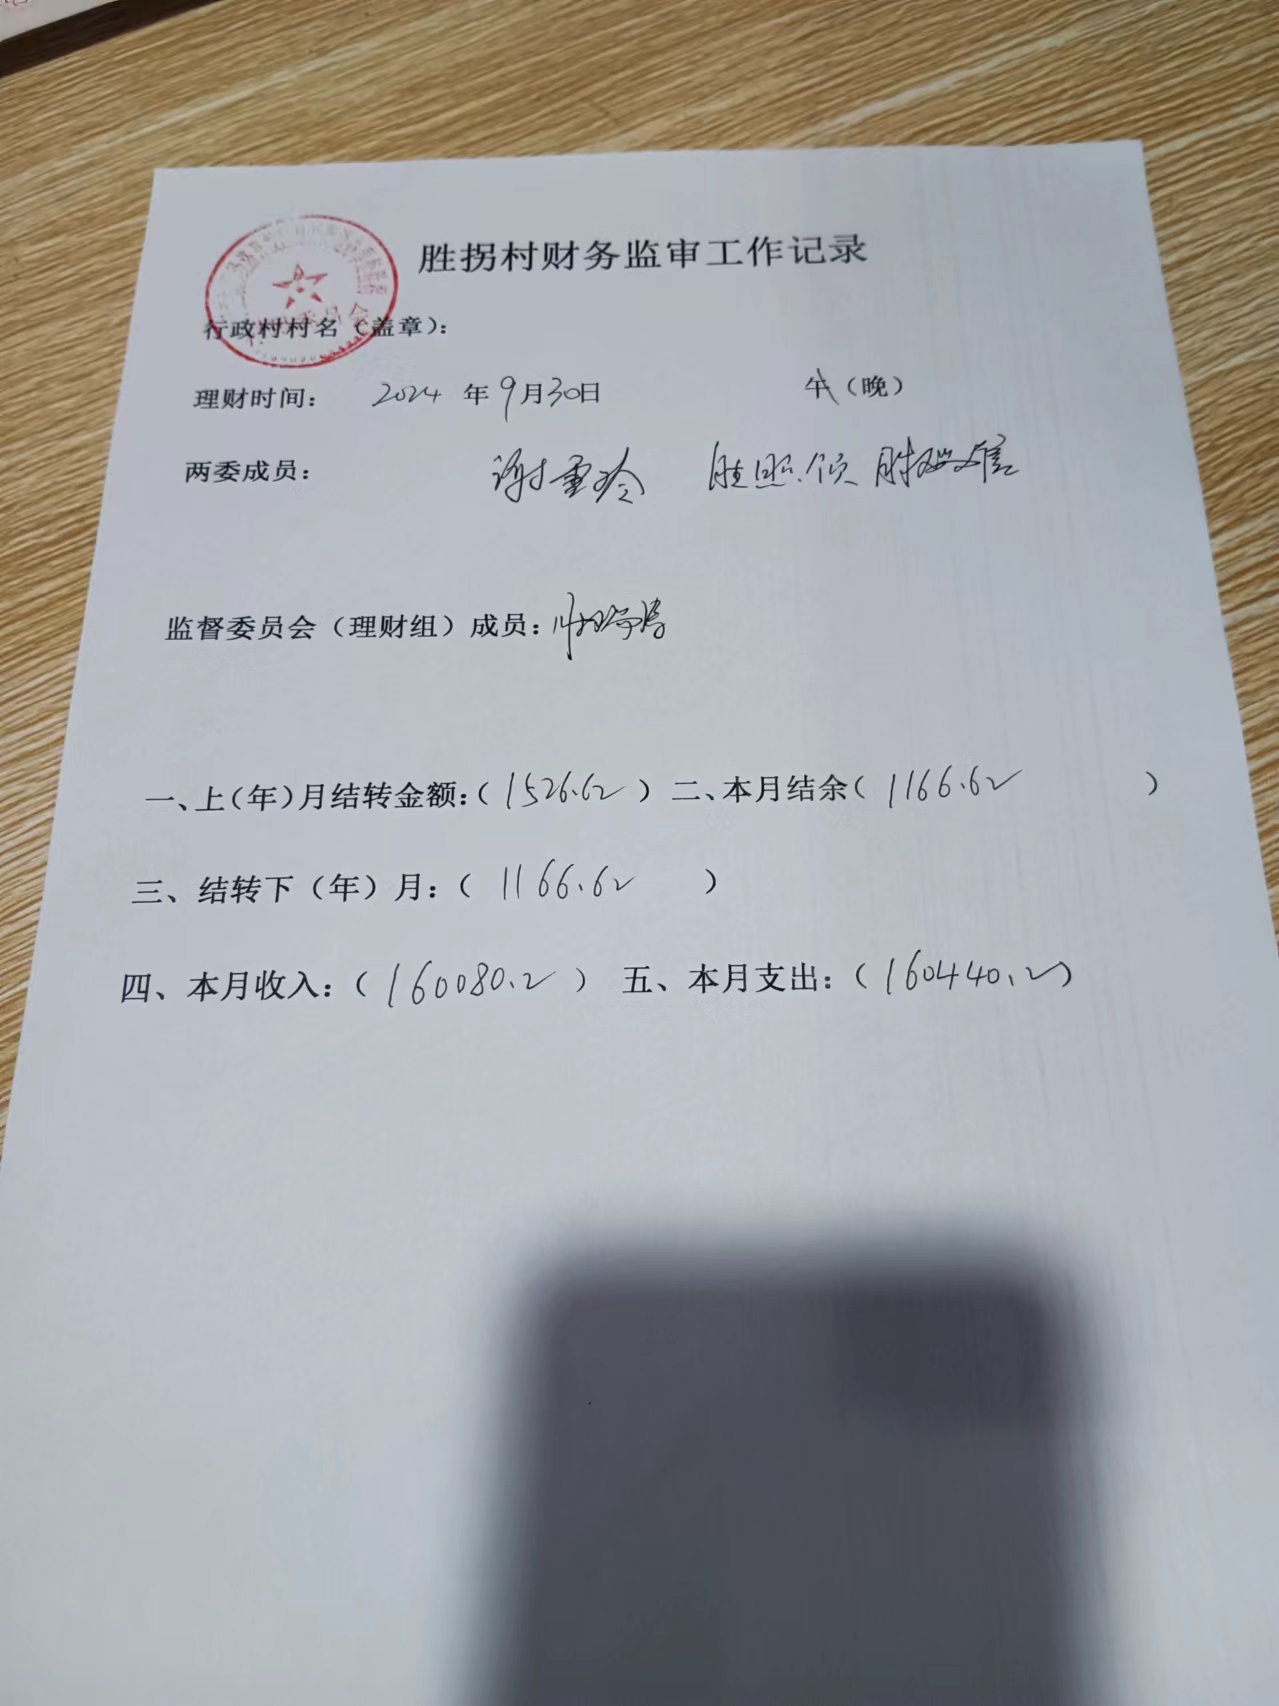 胜拐村财务监审工作记录
行政村村名（盖章）：
理财时间： 2024 年 9月30日 午（晚）
两委成员： 谢重玲
监督委员会（理财组）成员：
一、上（年）月结转金额：（1526.62）二、本月结余（1166.62）
三、结转下（年）月：（1166.62）
四、本月收入：（160080.2）五、本月支出：（160440.2）